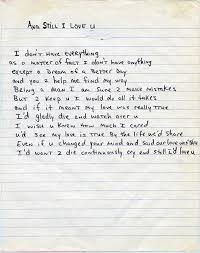 And Still I Love U
I don't have everything
as a matter of fact I don't have anything
except a Dream of a Better Day
and you 2 help me find my way
Being a man I am sure 2 make mistakes
But 2 keep u I would do all it takes
And if it meant my love was really true
I'd gladly die and watch over u
I wish u knew how much I cared
u'd see my love is true By the life we'd share
Even if u changed your mind and said our love was thru
I'd want 2 die continuously cry and still I'd love u